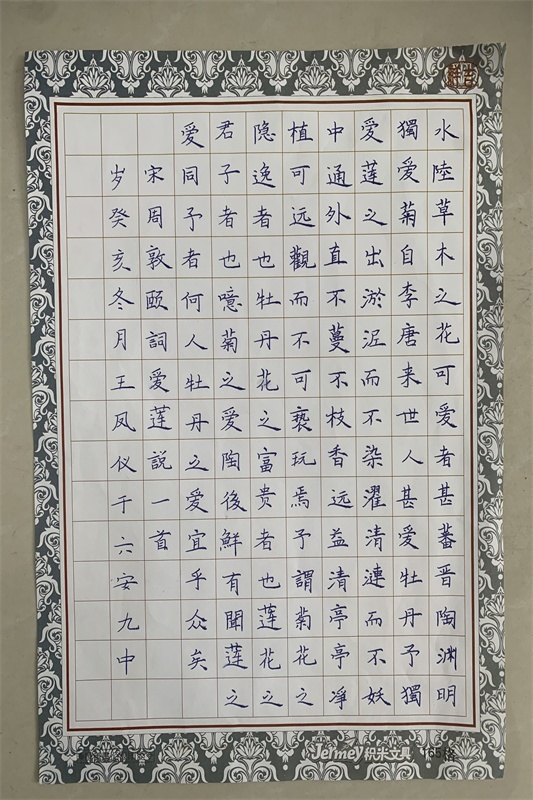 水陸草木之花可愛者甚蕃晋陶渊明
獨愛菊自李唐来世人甚爱牡丹予獨
爱莲之出淤泥而不染濯清漣而不妖
中通外直不蔓不枝香远益清亭亭净
植可远觀而不可亵玩焉予謂菊花之
隐逸者也牡丹花之富贵者也莲花之
君子者也噫菊之爱陶後鮮有聞莲之
爱同予者何人牡丹之爱宜乎众矣
宋周敦颐詞爱莲説一首
岁癸亥冬月王凤仪于六安九中
Jermey积米文具 165格